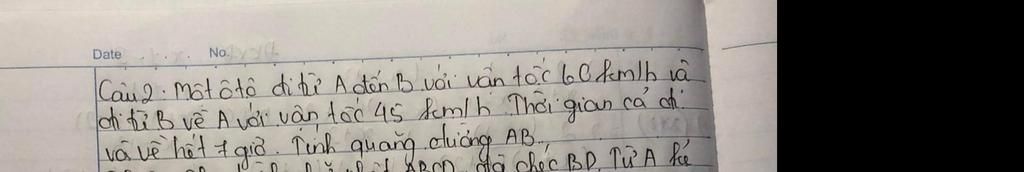 Date No.
Câu 2. Một ôtô đi từ A đến B với vận tốc 60 km/h và
đi từ B về A với vận tốc 45 km/h. Thời gian cả đi
và về hết 7 giờ. Tính quãng đường AB.
ABCD, đg chéo BD. Từ A kẻ